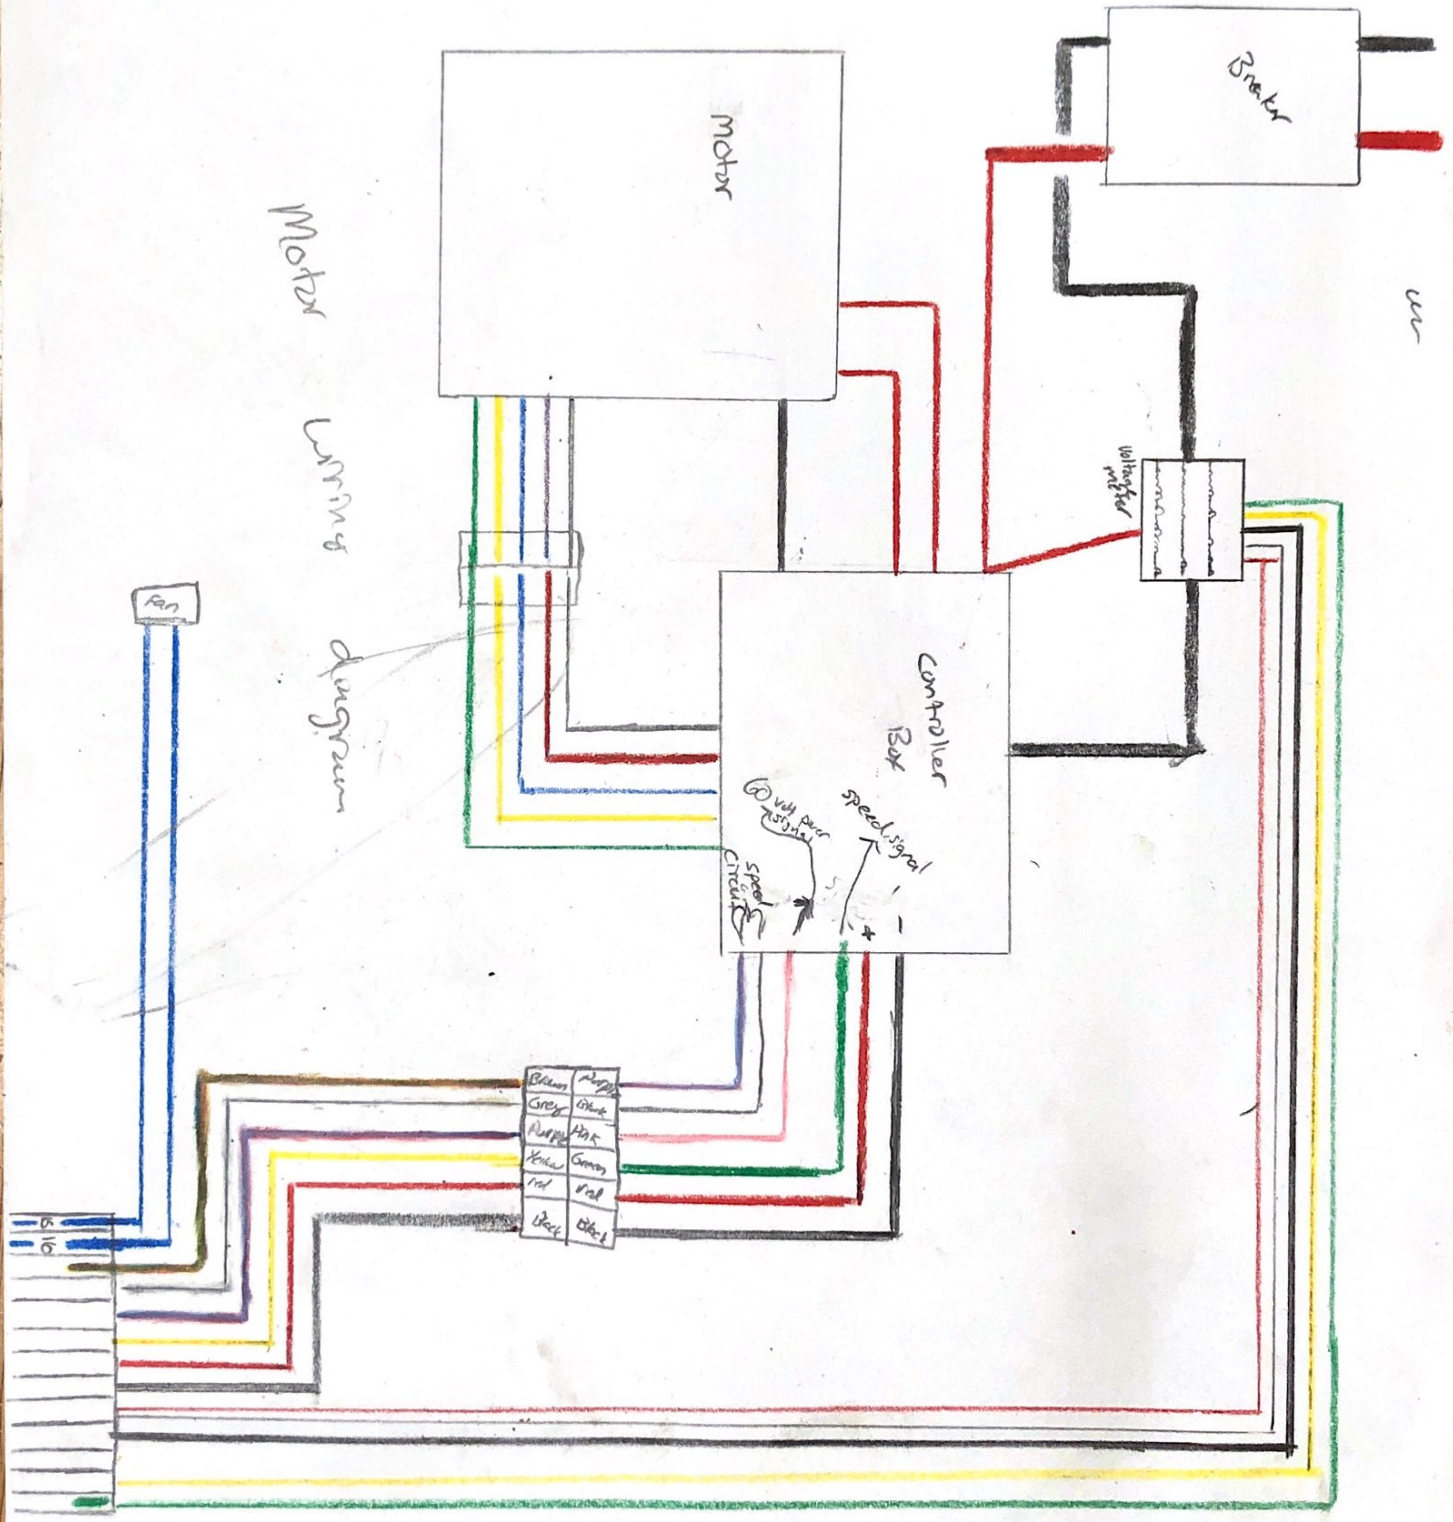 Motor wiring diagram
Breaker
Motor
voltage
meter
Controller
Box
60 volt power
signal
speed signal
speed
circuit
+
-
Fan
Brown Purple
Grey Black
Purple Pink
Yellow Green
red red
Black Black
15
16